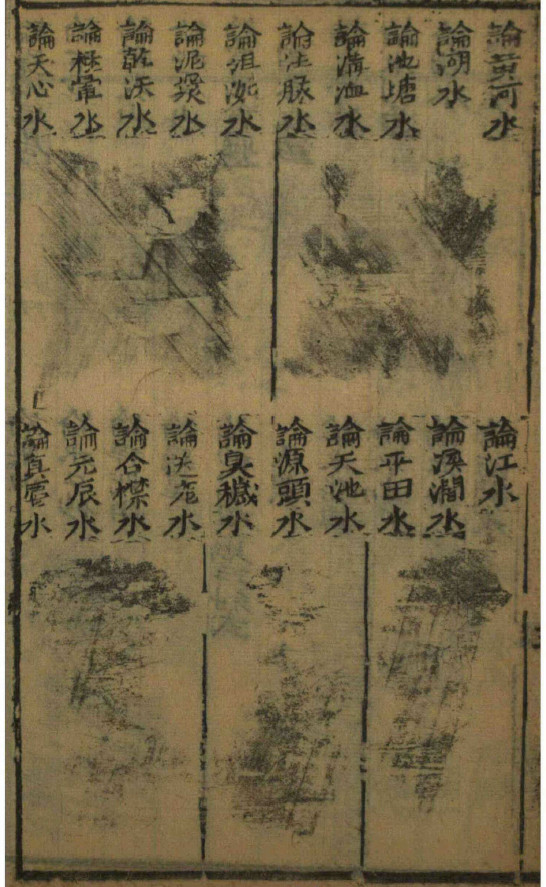 論黃河水
論湖水
論池塘水
論溝洫水
論注脉水
論沮洳水
論泥漿水
論乾水
論極暈水
論天心水
論江水
論溪澗水
論平田水
論天池水
論源頭水
論臭穢水
論送水
論合襟水
論元辰水
論真應水